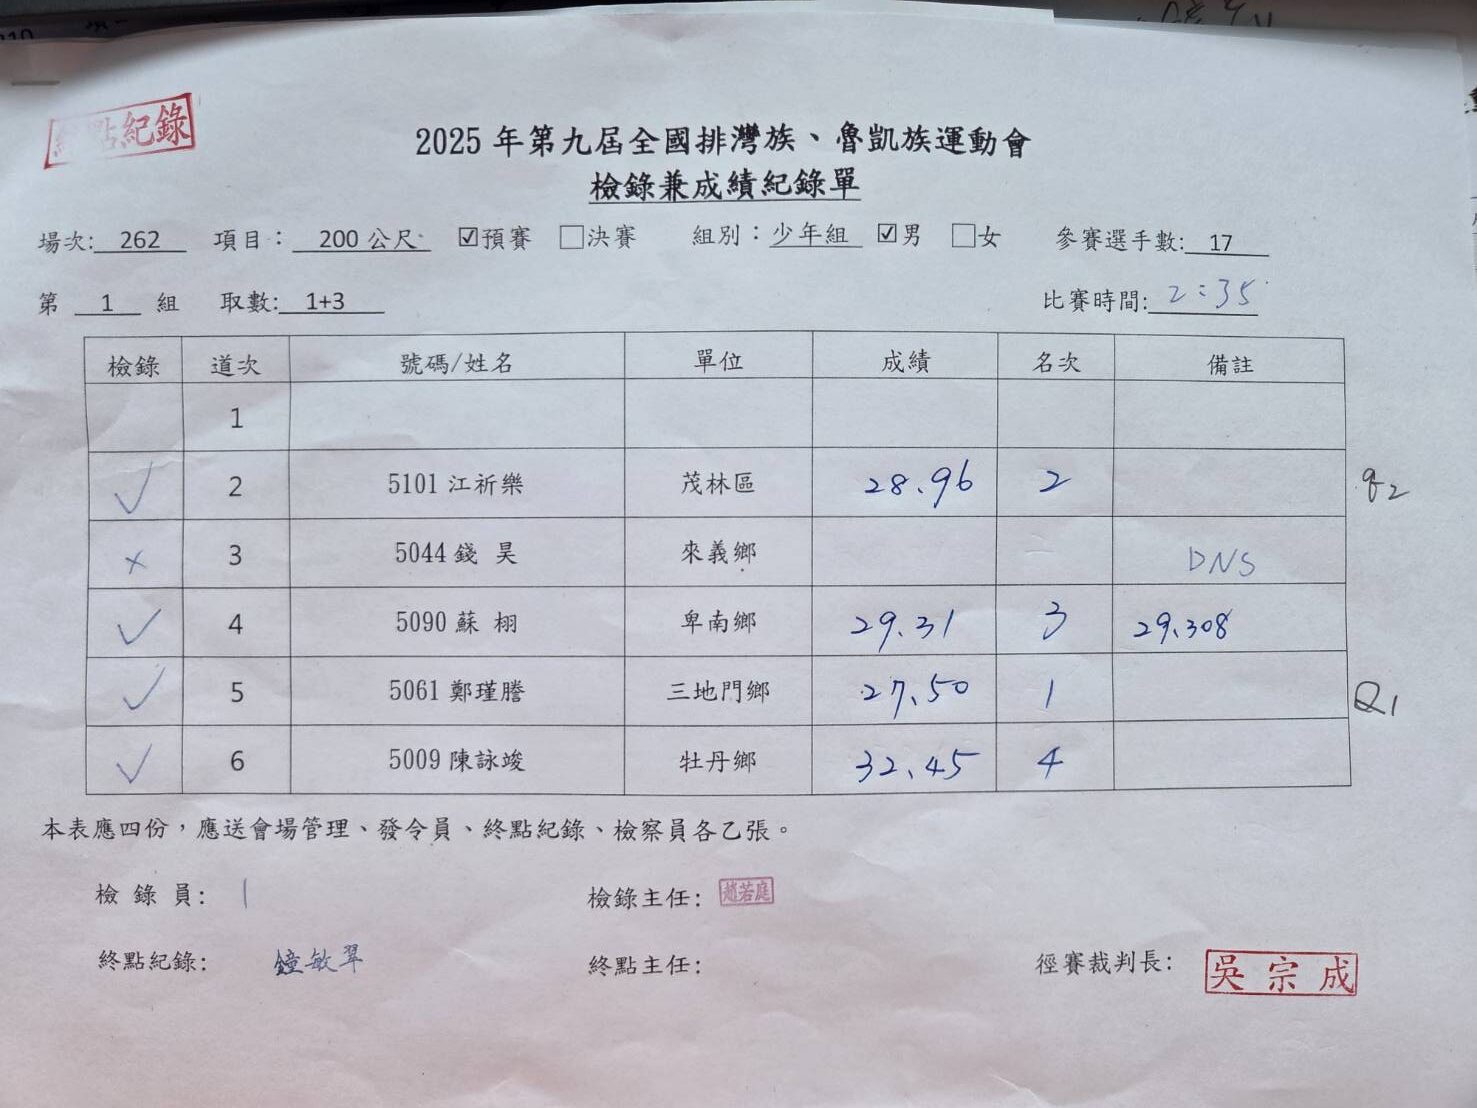 終點紀錄
2025 年第九屆全國排灣族、魯凱族運動會
檢錄兼成績紀錄單
場次: 262 項目： 200 公尺 ☑預賽 □決賽 組別：少年組 ☑男 □女 參賽選手數: 17
第 1 組 取數: 1+3 比賽時間: 2:35
檢錄 道次 號碼/姓名 單位 成績 名次 備註
1
✓ 2 5101 江祈樂 茂林區 28.96 2 q2
× 3 5044 錢 昊 來義鄉 DNS
✓ 4 5090 蘇 栩 卑南鄉 29.31 3 29.308
✓ 5 5061 鄭瑾謄 三地門鄉 27.50 1 Q1
✓ 6 5009 陳詠竣 牡丹鄉 32.45 4
本表應四份，應送會場管理、發令員、終點紀錄、檢察員各乙張。
檢 錄 員: 檢錄主任: 趙若庭
終點紀錄: 鐘敏翠 終點主任: 徑賽裁判長: 吳宗成